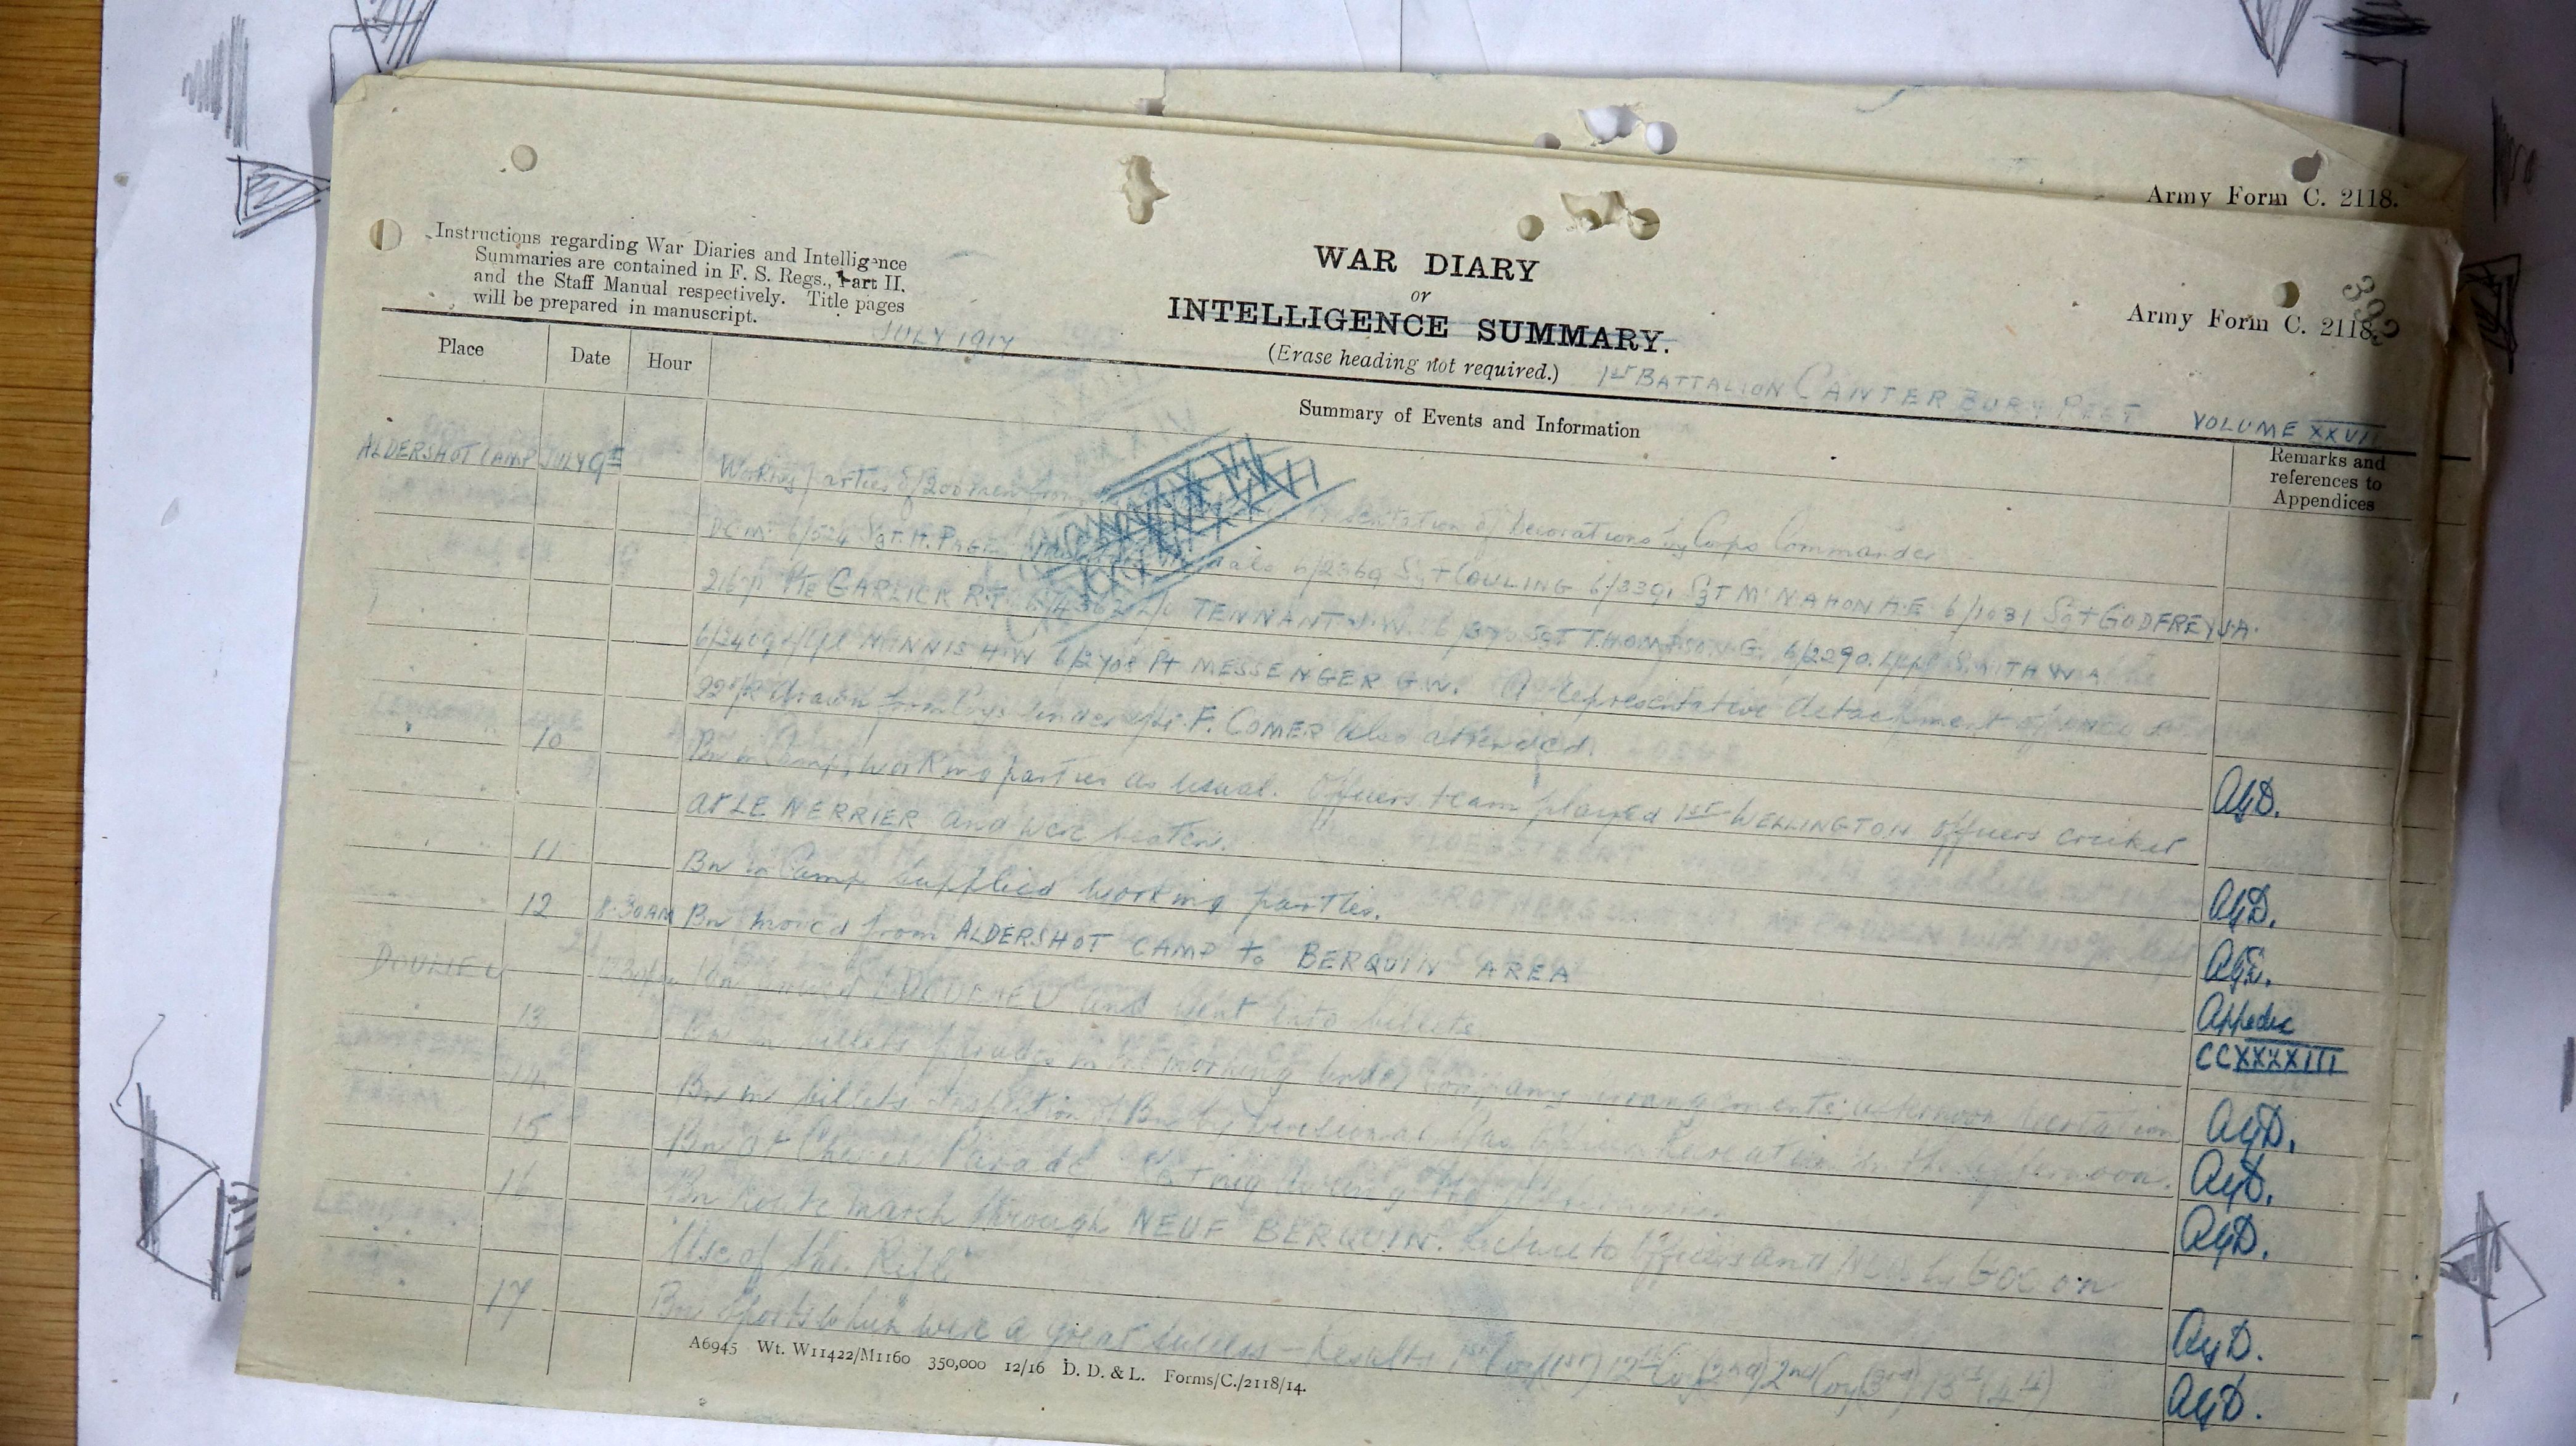 Army Form C. 2118.
Instructions regarding War Diaries and Intelligence
Summaries are contained in F. S. Regs., Part II.
and the Staff Manual respectively. Title pages
will be prepared in manuscript.
WAR DIARY
or
INTELLIGENCE SUMMARY.
(Erase heading not required.)
Army Form C. 2118.
JULY 1917
1st BATTALION CANTERBURY REGT
VOLUME XXVII
Place
Date
Hour
Summary of Events and Information
Remarks and
references to
Appendices
ALDERSHOT CAMP JULY 9th Working parties of 200 men from presentation of decorations by Corps Commander
DCM: 6/524 Sgt. H. PAGE 6/2369 Sgt COULING 6/3391 Sgt McNAHON H.E. 6/1031 Sgt GODFREY J.A.
Pte GARLICK R.F. 6/4362 L/c TENNANT J.W. Sgt THOMPSON G. 6/2290 L/cpl SMITH W A
MINNIS H.W 6/2708 Pt MESSENGER G.W. A representative detachment of
drawn from Coys under F. COMER also attended. AGD.
10 Bn in Camp, working parties as usual. Officers team played 1st WELLINGTON officers cricket
at LE NERRIER and were beaten. AGD.
11 Bn in Camp supplied working parties. AGD.
12 8.30AM Bn moved from ALDERSHOT CAMP to BERQUIN AREA Appedix
DOULIEU Bn arrived DOULIEU and went into billets CCXXXXIII
13 Bn in billets parades in the morning under company arrangements; afternoon recreation AGD.
14 Bn in billets Inspection of Bn by Divisional Gas Recreation in the afternoon. AGD.
15 Bn at Church Parade during the afternoon. AGD.
16 Bn route march through NEUF BERQUIN. Lecture to Officers and NCOs by GOC on
Use of the Rifle AGD.
17 Bn sports which were a great success - Results 1st Coy (1st) 12th Coy (2nd) 2nd Coy (3rd) 13th (4th) AGD.
A6945 Wt. W11422/M1160 350,000 12/16 D. D. & L. Forms/C./2118/14.